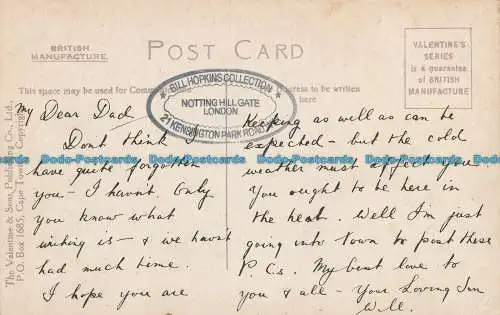 BRITISH
MANUFACTURE.
POST CARD
VALENTINE'S
SERIES
is a guarantee
of BRITISH
MANUFACTURE
This space may be used for
to be written
here
BILL HOPKINS COLLECTION
NOTTING HILL GATE
LONDON
21 KENSINGTON PARK ROAD
The Valentine & Sons, Publishing Co., Ltd.,
P.O. Box 1685, Cape Town. Copyright
My Dear Dad
Dont think I
have quite forgotten
you - I havn't. Only
you know what
writing is - & we havn't
had much time.
I hope you are
keeping as well as can be
expected - but the cold
weather must affect you.
You ought to be here in
the heat. Well I'm just
going into town to post these
P.Cs. My best love to
you & all - Your Loving Son
Will.
Dodo-Postcards Dodo-Postcards Dodo-Postcards Dodo-Postcards Dodo-Postcards
Dodo-Postcards Dodo-Postcards Dodo-Postcards Dodo-Postcards Dodo-Postcards